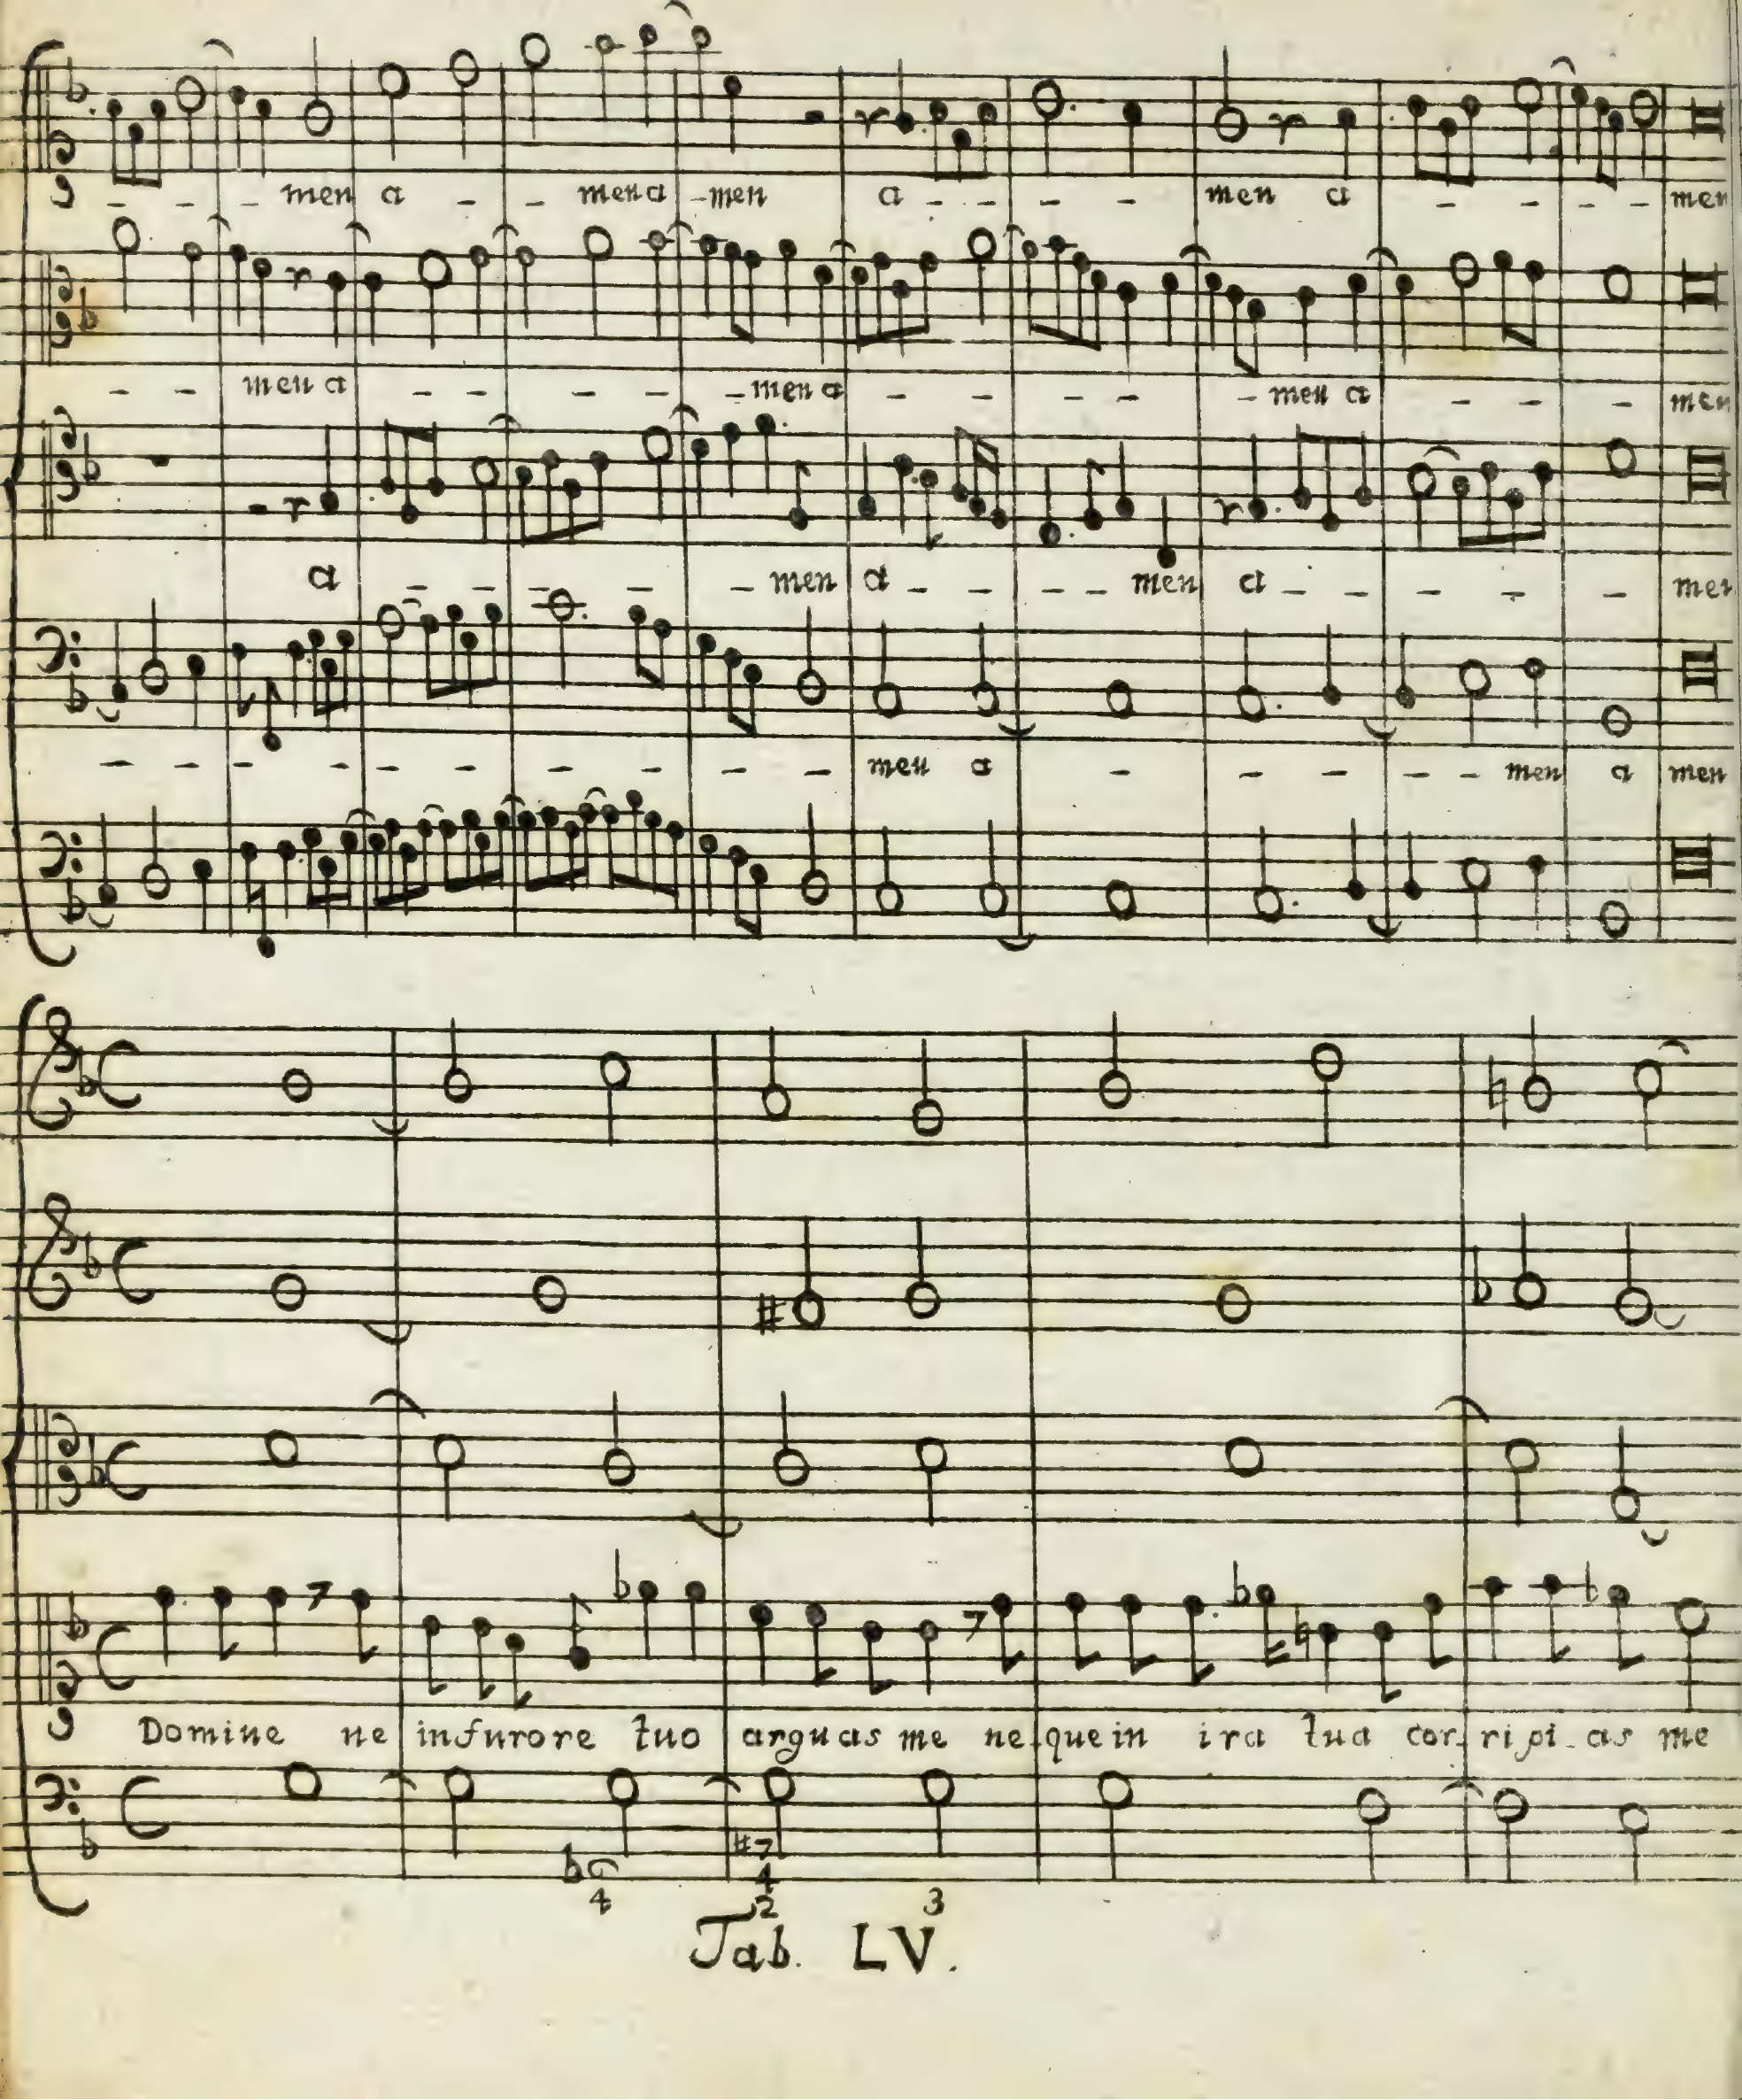 - - - men a - - men a - men a - - - - men a - - - - men
- - men a - - - - - men a - - - - - men a - - - men
a - - - - - men a - - - - men a - - - - - men
- - - - - - - - - - men a - - - - - men a men
Domine ne in furore tuo arguas me ne - que in ira tua cor - ripi - as me
♭6 #7
4 4
2 3
Tab. LV.